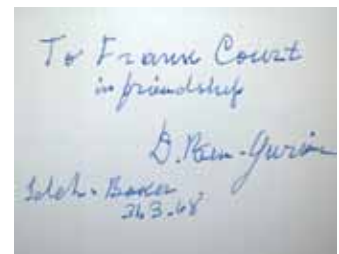 To Frank Court
in friendship
D. Ben-Gurion
Sdeh-Boker
24.3.68